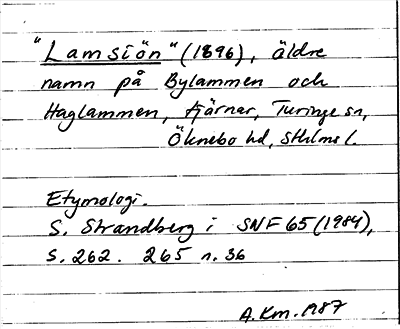 "Lamsiön" (1896), äldre
namn på Bylammen och
Haglammen, tjärnar, Turinge sn,
Öknebo hd, Sthlms l.
Etymologi.
S. Strandberg i SNF 65 (1984),
s. 262. 265 n. 36
A.Km. 1987